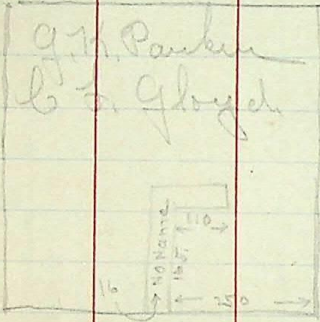 G. K. Parker
C L. Gloyd
No Name
165.
110
16
250